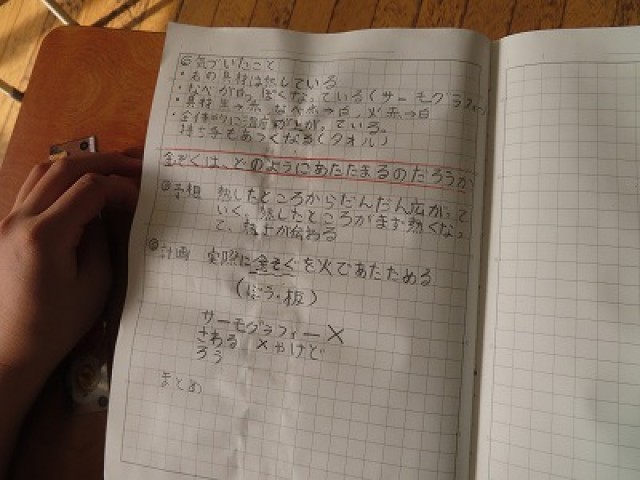 気づいたこと
・なべの具材は熱している
・なべが白ぽくなっている(サーモグラフィー
・具材 生→赤、なべ 赤→白、火 赤→白
・全体的に温度が上がっている。
持ち手もあつくなる(タオル)
金ぞくは、どのようにあたたまるのだろうか
予想 熱したところからだんだん広がって
いく。熱したところがまず熱くなっ
て、が伝わる
計画 実際に金ぞくを火であたためる
(ぼう・板)
サーモグラフィー×
さわる ×やけど
ろう
まとめ